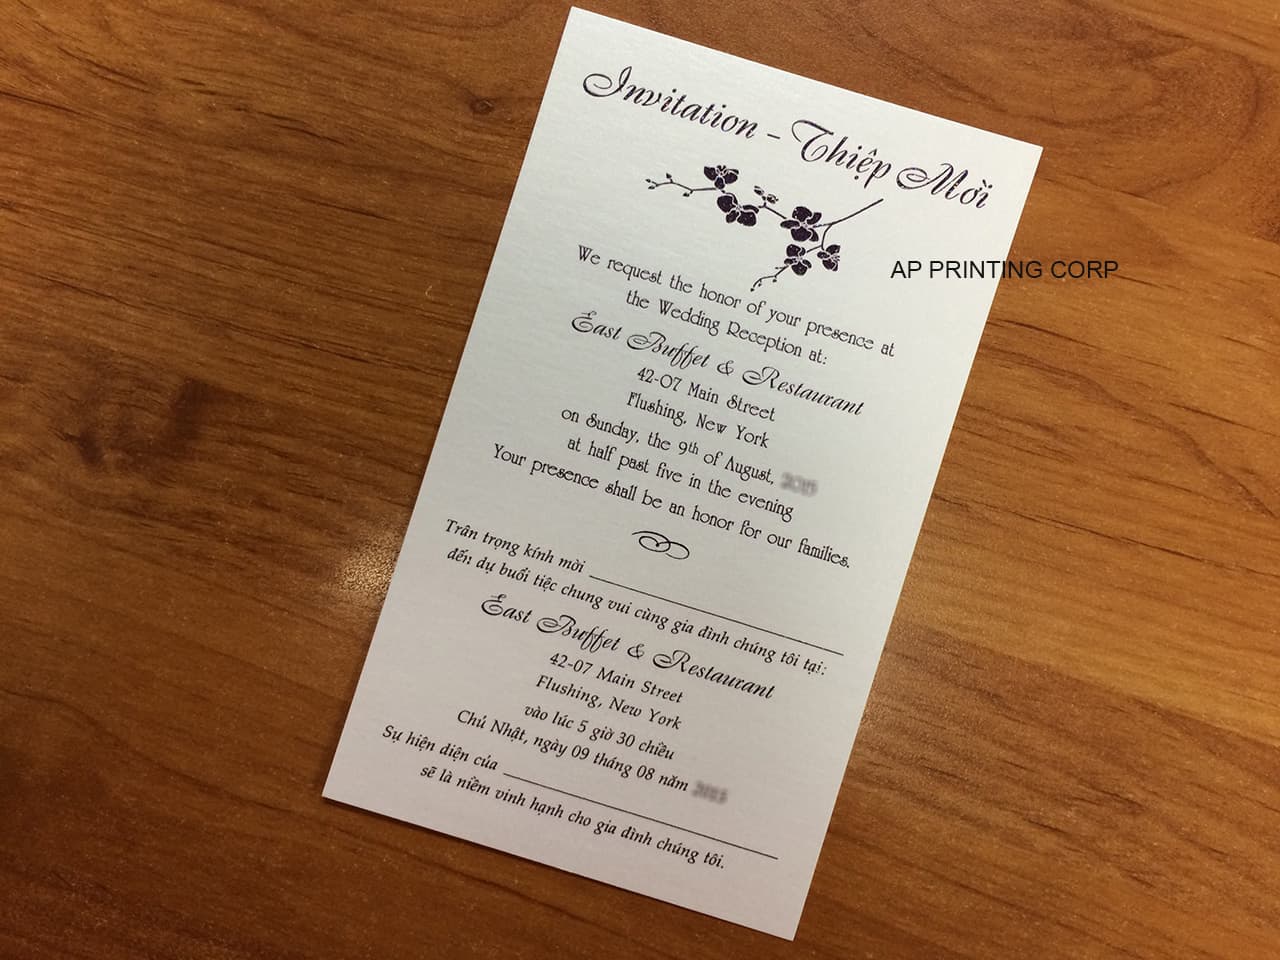 Invitation - Thiệp Mời
AP PRINTING CORP
We request the honor of your presence at
the Wedding Reception at:
East Buffet & Restaurant
42-07 Main Street
Flushing, New York
on Sunday, the 9th of August,
at half past five in the evening
Your presence shall be an honor for our families.
Trân trọng kính mời
đến dự buổi tiệc chung vui cùng gia đình chúng tôi tại:
East Buffet & Restaurant
42-07 Main Street
Flushing, New York
vào lúc 5 giờ 30 chiều
Chủ Nhật, ngày 09 tháng 08 năm
Sự hiện diện của
sẽ là niềm vinh hạnh cho gia đình chúng tôi.